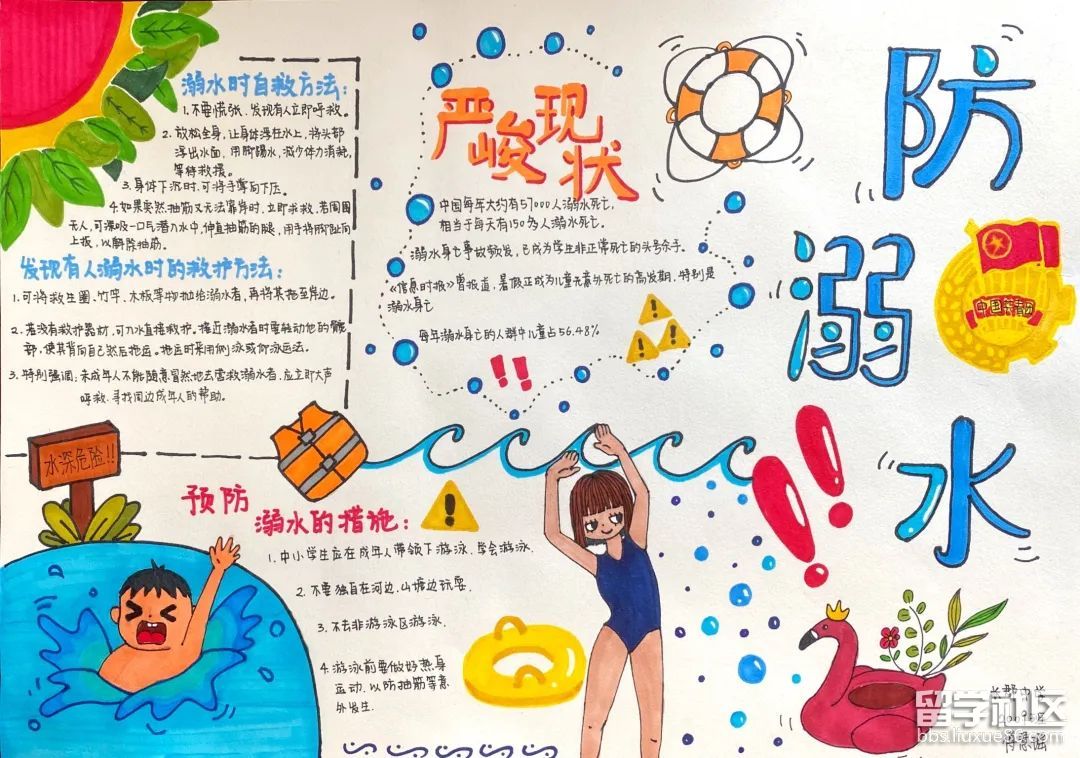 防溺水
溺水时自救方法:
1.不要慌张,发现有人立即呼救。
2.放松全身,让身体浮在水上,将头部
浮出水面,用脚踢水,减少体力消耗,
等待救援。
3.身体下沉时,可将手掌向下压。
4.如果突然抽筋又无法靠岸时,立即求救,若周围
无人,可深吸一口气潜入水中,伸直抽筋的腿,用手将脚趾向
上扳,以解除抽筋。
发现有人溺水时的救护方法:
1.可将救生圈、竹竿、木板等物抛给溺水者,再将其拖至岸边。
2.若没有救护器材,可入水直接救护。接近溺水者时要转动他的髋
部,使其背向自己然后拖运。拖运时采用侧泳或仰泳运法。
3.特别强调:未成年人不能随意冒然地去营救溺水者,应立即大声
呼救,寻找周边成年人的帮助。
严峻现状
中国每年大约有57000人溺水死亡,
相当于每天有150为人溺水死亡。
溺水身亡事故频发,已成为学生非正常死亡的头号杀手。
《信息时报》曾报道,暑假正成为儿童意外死亡的高发期,特别是
溺水身亡
每年溺水身亡的人群中儿童占56.48%
中国共青团
水深危险!!
预防
溺水的措施:
1.中小学生应在成年人带领下游泳、学会游泳.
2.不要独自在河边、山塘边玩耍.
3.不去非游泳区游泳.
4.游泳前要做好热身
运动,以防抽筋等意
外发生.
长郡中学
留学社区
bbs.liuxue86.com